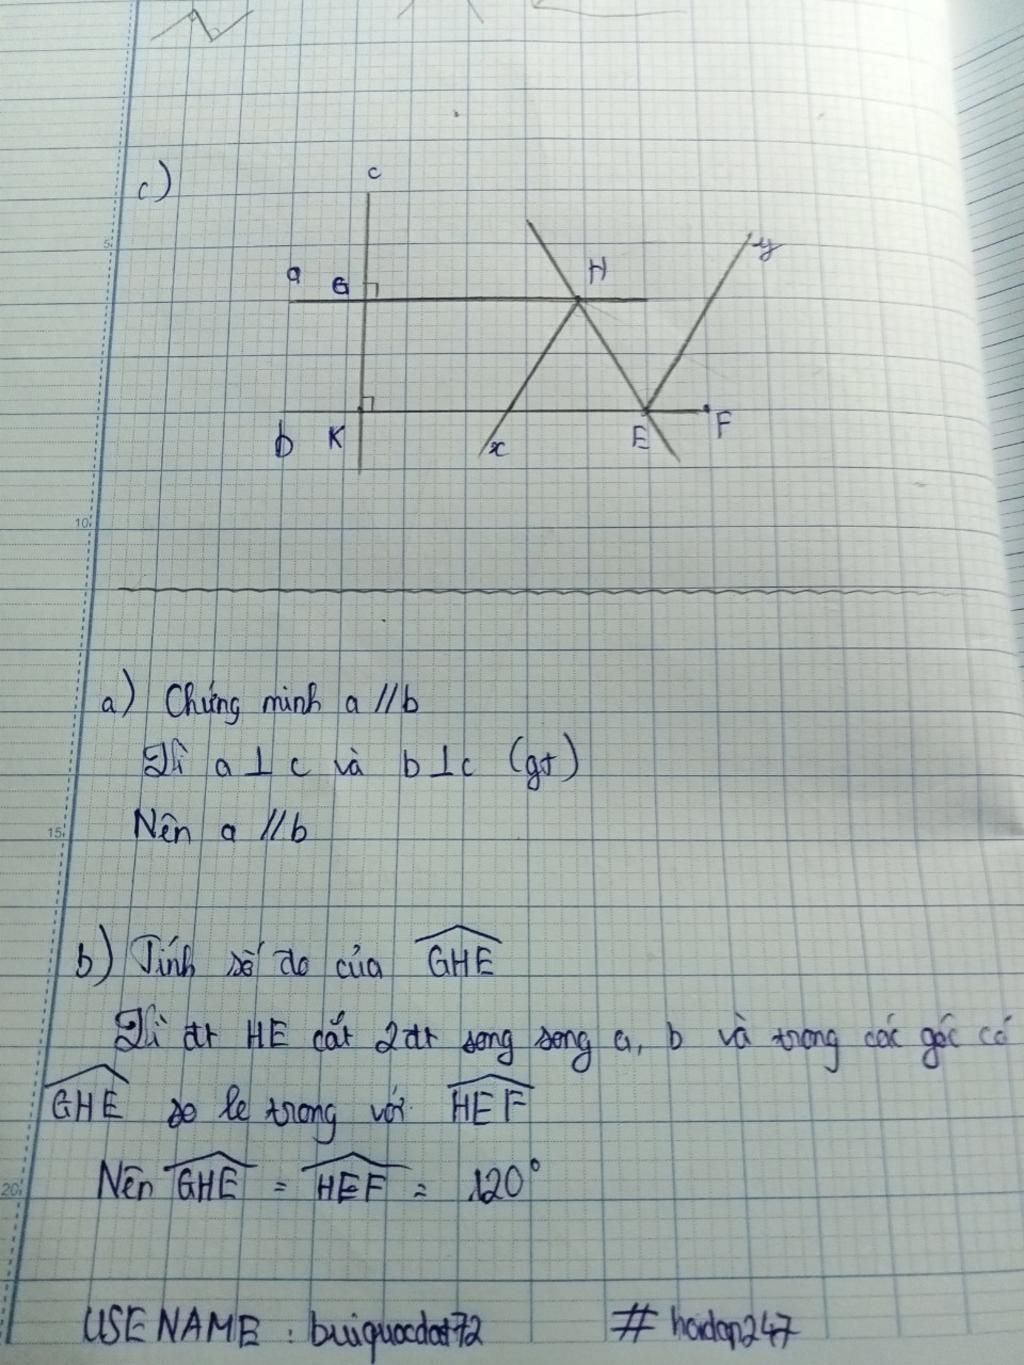 c)
c
a G H y
b K x E F
a) Chứng minh a // b
Vì a ⊥ c và b ⊥ c (gt)
Nên a // b
b) Tính số đo của GHE
Vì đt HE cắt 2 đt song song a, b và trong các góc có
GHE so le trong với HEF
Nên GHE = HEF = 120°
USENAME : buiquocdat72 # hoidap247
5
10
15
20